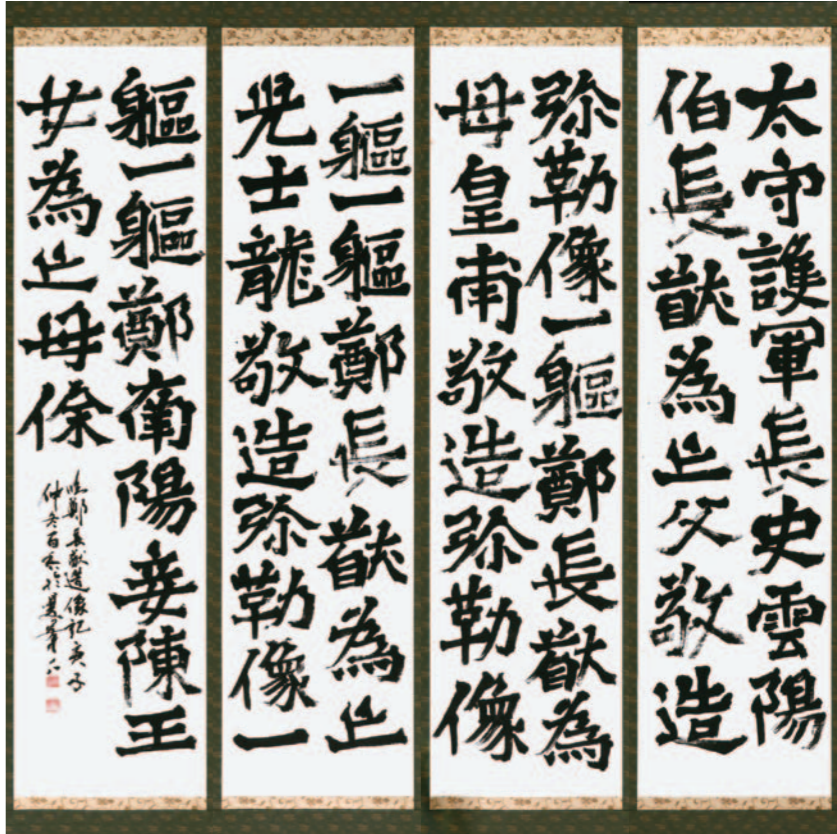 太守護軍長史雲陽
伯長猷為亡父敬造
弥勒像一軀鄭長猷為
母皇甫敬造弥勒像
一軀一軀鄭長猷為亡
児士龍敬造弥勒像一
軀一軀鄭南陽妾陳王
女為亡母徐
臨鄭長猷造像記庚子
仲冬